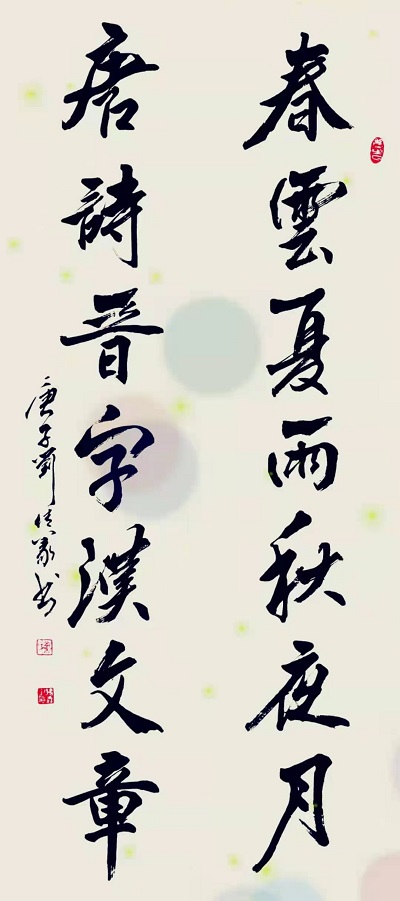 春雲夏雨秋夜月
唐詩晉字漢文章
庚子劉
書